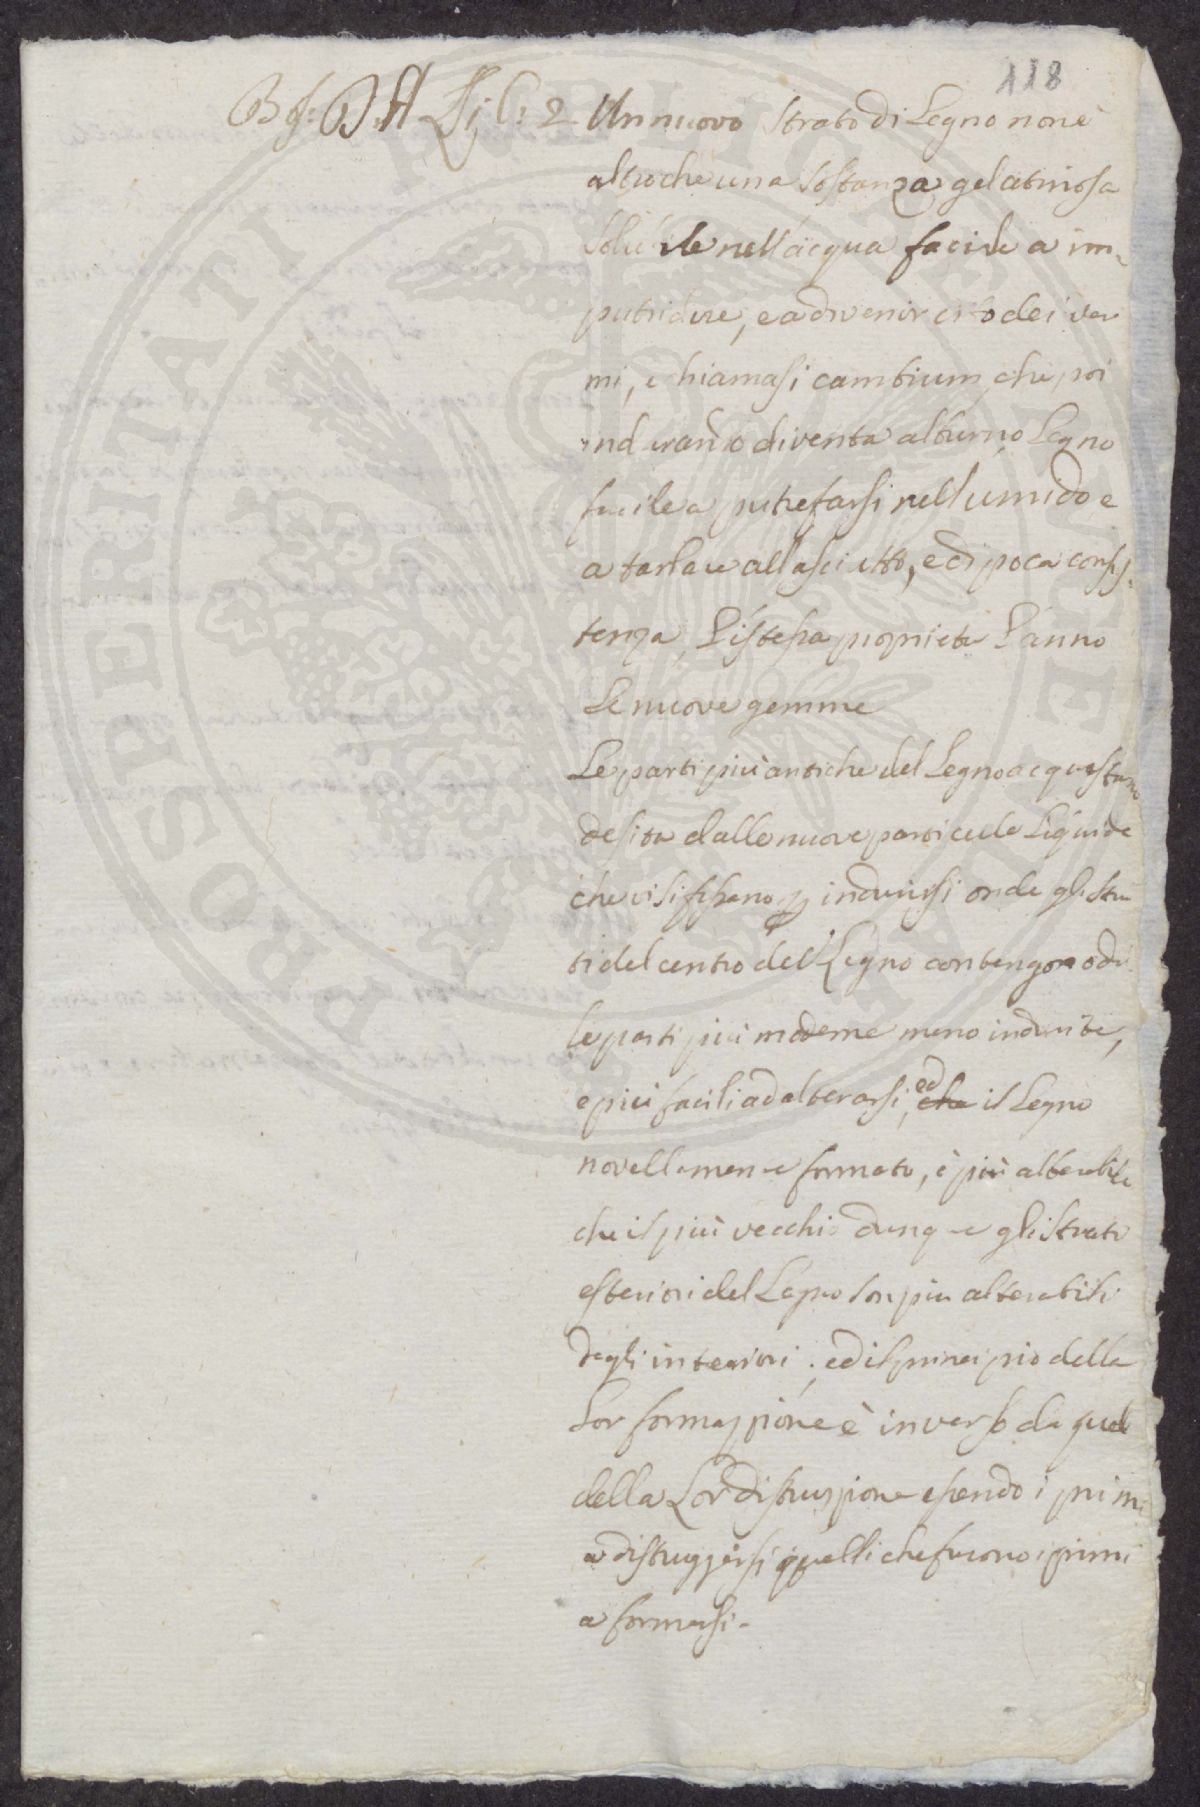 118
Un nuovo strato di Legno non è
altro che una sostanza gelatinosa
solubile nell'acqua facile a im-
putridire, e a divenir cibo dei ver
mi, e chiamasi cambium, che poi
indurando diventa alburno Legno
facile a putrefarsi nell'umido e
a tarlare all'asciutto, e di poca consis-
tenza, L'istessa proprietà L'anno
Le nuove gemme
Le parti più antiche del Legno acquistano
desità dalle nuove particule Liquide
che vi si fissano p indurirsi onde gli stra
ti del centro del Legno contengono
le parti più moderne meno indurite,
e più facili ad alterarsi, ed che il Legno
novellamente formato, è più alterabile
che il più vecchio dunque gli strati
esteriori del Legno son più alterabili
degli interiori; ed il principio della
Lor formazzione è inverso da quel
della Lor distruzzione essendo i primi
a distruggersi quelli che furono i primi
a formarsi.
PROSPERITATI PUBLICAE AUGENDAE